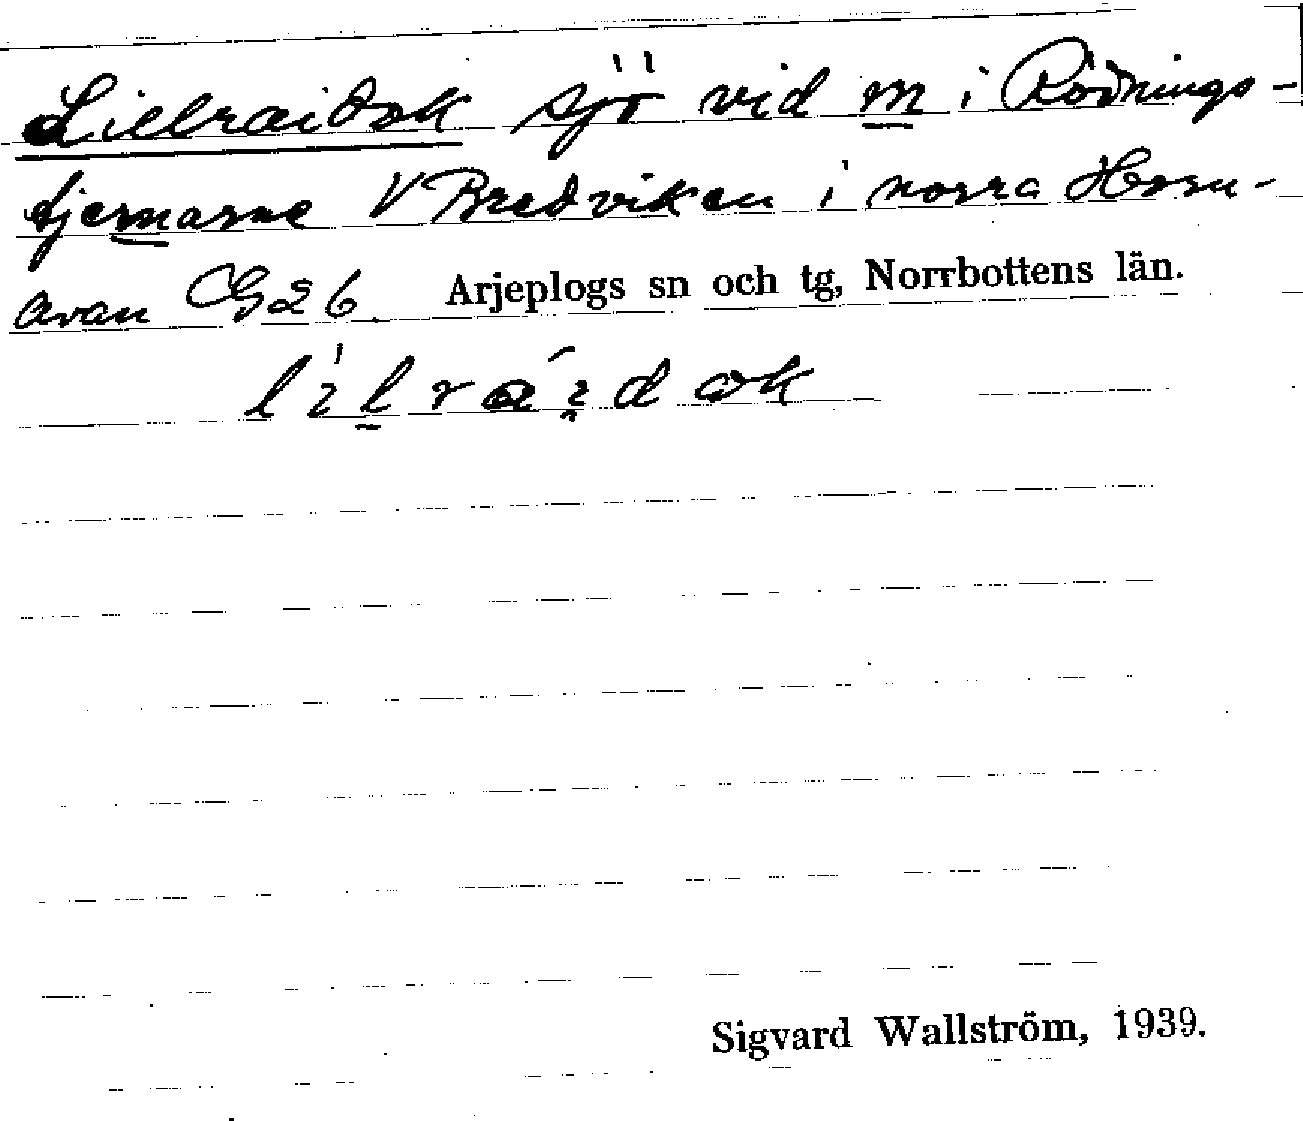 Lilraidok sjö vid m i Rödnings-
tjernarne V Bredviken i norra Horn-
avan G26. Arjeplogs sn och tg, Norrbottens län.
lìlráidok
Sigvard Wallström, 1939.